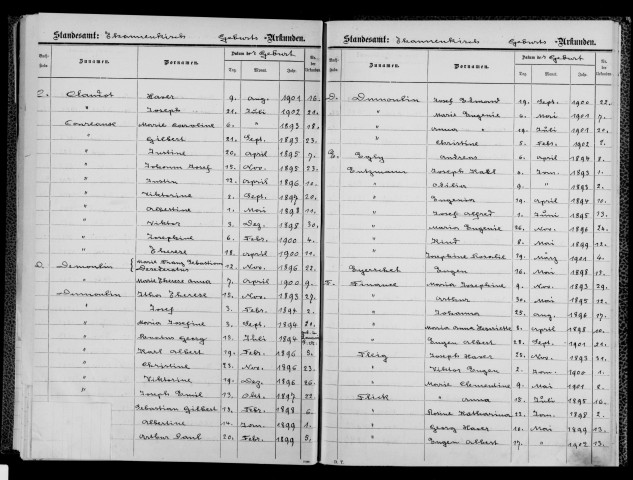 Standesamt: Thannenkirch Geburts-Urkunden.
Buch-stabe Zunamen. Vornamen. Datum der Geburt No. der Urkunden
Tag. Monat. Jahr.
C. Claudot Xaver 9. Aug. 1901 16.
" Joseph 21. Juli 1902 21.
Marie Caroline 6. " 1893 18.
" Gilbert 21. Sept. 1893 23.
" Justine 20. April 1895 7.
" Johann Josef 15. Nov. 1895 23.
" Justin 12. April 1896 10.
" Viktorine 2. Sept. 1897 20.
" Albertine 1. Mai 1898 11.
" Viktor 3. Dez. 1898 30.
" Josephine 6. Febr. 1900 4.
" Therese 18. April 1900 11.
D. Demoulin Marie Franz Sebastian 12. Nov. 1896 22.
" Marie Therese Anna 7. April 1900 9.
Dumoulin Therese 15. Nov. 1893 27.
" Josef 3. Febr. 1894 2.
" Maria Josefine 3. Sept. 1894 21.
" Georg 13. Juli 1894
" Karl Albert 19. Febr. 1896 3.
" Christine 23. Nov. 1896 23.
" Viktorine 19. Dez. 1896 26.
" Joseph Emil 13. Okt. 1897 22.
Sebastian Gilbert 13. Febr. 1898 6.
Albertine 14. Jan. 1899 1.
Arthur Paul 20. Febr. 1899 5.
Standesamt: Thannenkirch Geburts-Urkunden.
Buch-stabe Zunamen. Vornamen. Datum der Geburt No. der Urkunden
Tag. Monat. Jahr.
D. Dumoulin Josef Edmond 19. Sept. 1900 22.
" Marie Eugenie 6. Mai 1901 7.
" Anna 19. Juli 1901
" Christine 5. Febr. 1902 2.
E. Egly Andreas 6. April 1894 8.
Entzmann Joseph Karl 6. Jan. 1893 1.
" Odilia 9. " 1893 2.
" Eugenia 19. April 1894 10.
" Josef Alfred 1. Juni 1895 13.
" Maria Eugenie 26. Nov. 1896 24.
" Kind 8. Mai 1899 12.
" Josephine Rosalie 19. März 1901 4.
Eugen 16. Mai 1898 13.
F. Maria Josephine 9. Nov. 1893 29.
" Arthur 30. Mai 1895 12.
" Johanna 25. Aug. 1896 17.
" Maria Anna Henriette 8. April 1898 10.
" Eugen Albert 28. Sept. 1901 21.
Fleig Joseph Xaver 25. Nov. 1893 31.
" Viktor Eugen 2. Jan. 1900 1.
" Marie Clementine 9. Mai 1901 8.
Flick Anna 15. Juli 1895 16.
" Katharina 23. Jan. 1898 2.
" Georg Xaver 18. Mai 1899 13.
" Eugen Albert 17. " 1902 13.